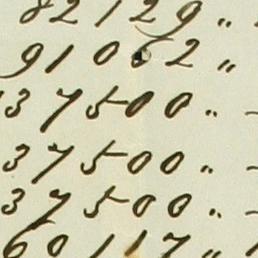 82129 "
91062 "
37500 " -
37500 " -
37500 " -
60117 " -